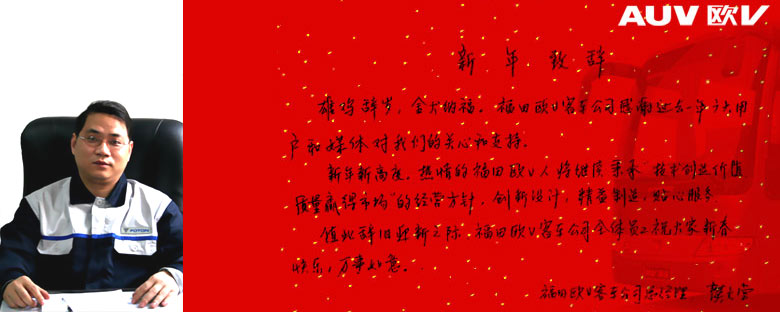 AUV 欧V
新年致辞
雄鸡辞岁，金犬纳福。福田欧V客车公司感谢过去一年广大用
户和媒体对我们的关心和支持。
新年新高度。热情的福田欧V人将继续秉承“技术创造价值
质量赢得市场”的经营方针，创新设计，精益制造，贴心服务
值此辞旧迎新之际，福田欧V客车公司全体员工祝大家新春
快乐，万事如意。
福田欧V客车公司总经理
FOTON